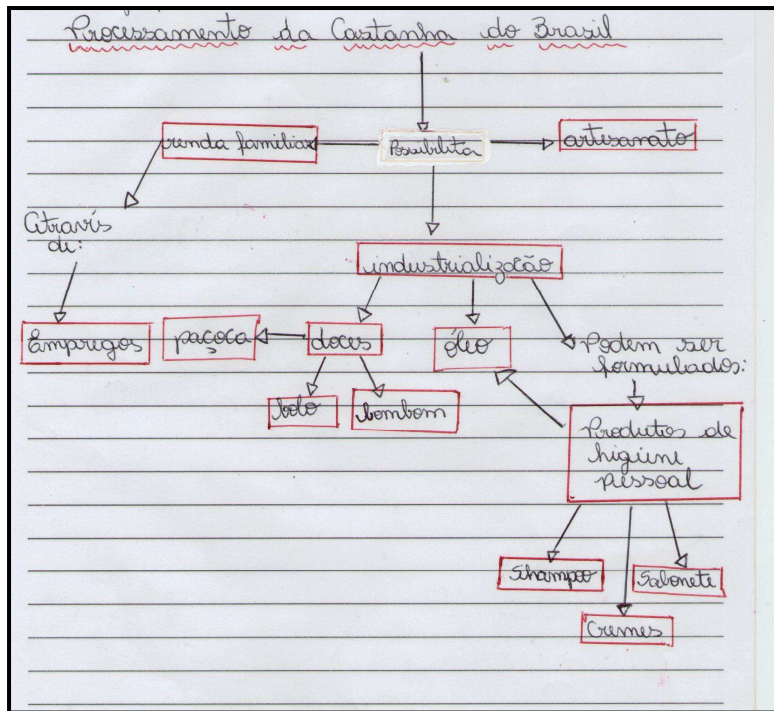 Processamento da Castanha do Brasil
renda familiar
Possibilita
artesanato
Através
de:
industrialização
Empregos
paçoca
doces
óleo
Podem ser
formulados:
bolo
bombom
Produtos de
higiene
pessoal
Shampoo
Sabonete
Cremes